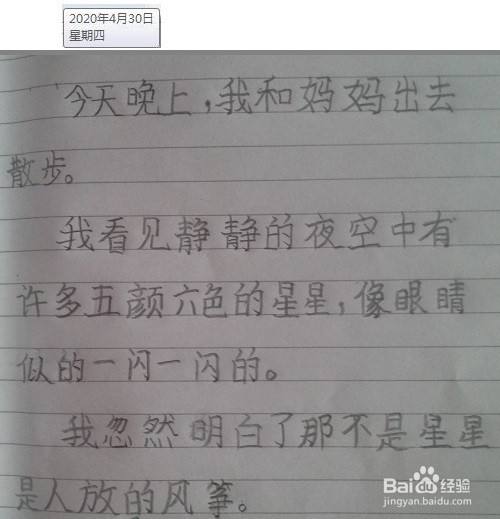 2020年4月30日
星期四
今天晚上,我和妈妈出去
散步。
我看见静静的夜空中有
许多五颜六色的星星,像眼睛
似的一闪一闪的。
我忽然明白了那不是星星
是人放的风筝。
Baidu经验
jingyan.baidu.com